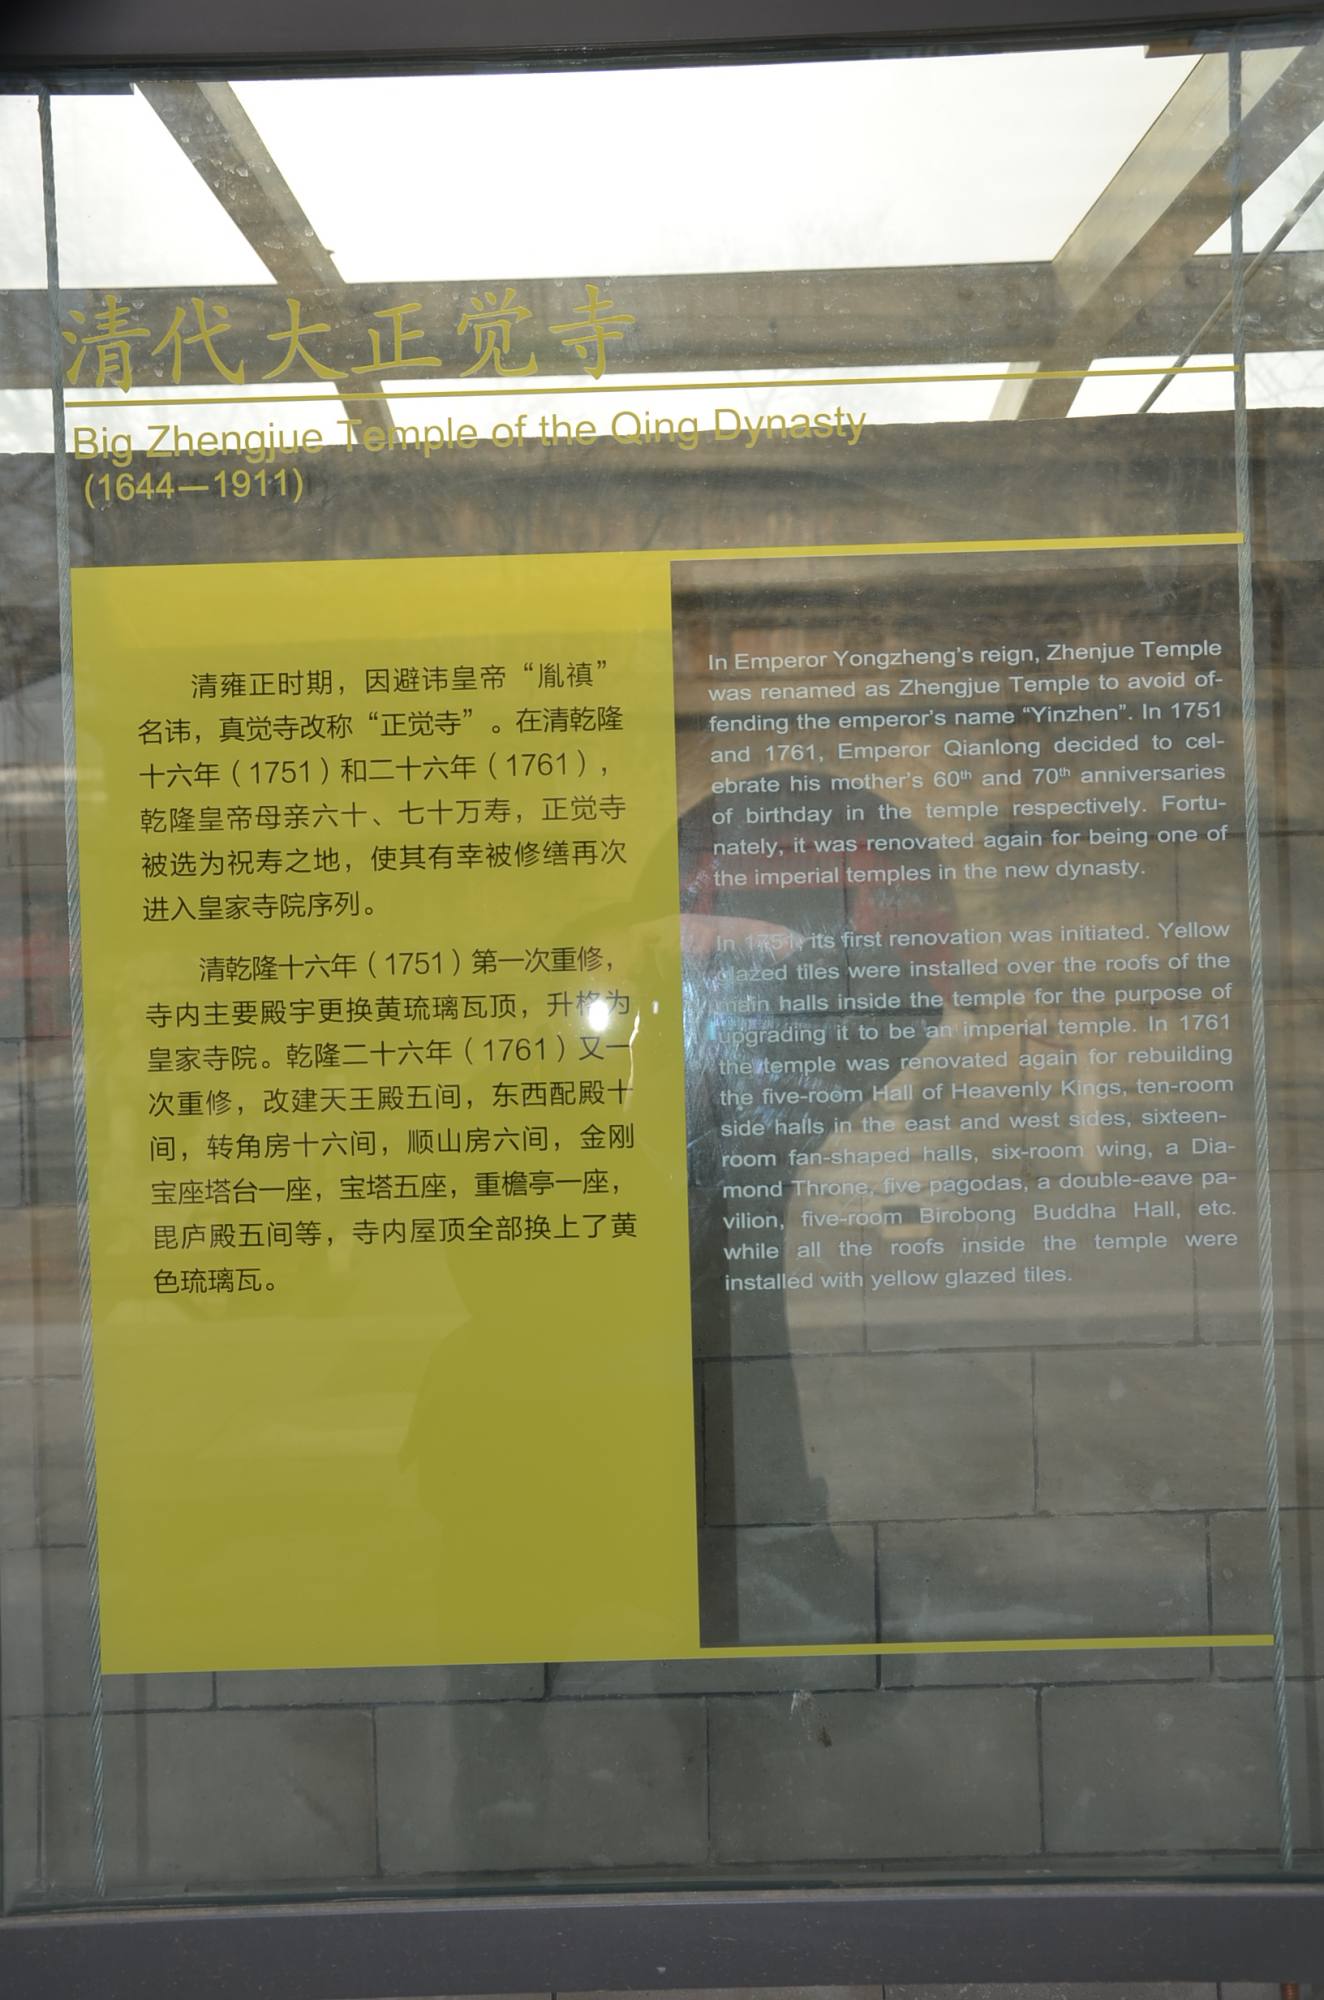 清代大正觉寺
Big Zhengjue Temple of the Qing Dynasty
(1644—1911)
清雍正时期，因避讳皇帝“胤禛”
名讳，真觉寺改称“正觉寺”。在清乾隆
十六年（1751）和二十六年（1761），
乾隆皇帝母亲六十、七十万寿，正觉寺
被选为祝寿之地，使其有幸被修缮再次
进入皇家寺院序列。
清乾隆十六年（1751）第一次重修，
寺内主要殿宇更换黄琉璃瓦顶，升格为
皇家寺院。乾隆二十六年（1761）又一
次重修，改建天王殿五间，东西配殿十
间，转角房十六间，顺山房六间，金刚
宝座塔台一座，宝塔五座，重檐亭一座，
毘庐殿五间等，寺内屋顶全部换上了黄
色琉璃瓦。
In Emperor Yongzheng’s reign, Zhenjue Temple
was renamed as Zhengjue Temple to avoid of-
fending the emperor’s name “Yinzhen”. In 1751
and 1761, Emperor Qianlong decided to cel-
ebrate his mother’s 60th and 70th anniversaries
of birthday in the temple respectively. Fortu-
nately, it was renovated again for being one of
the imperial temples in the new dynasty.
In 1751, its first renovation was initiated. Yellow
glazed tiles were installed over the roofs of the
main halls inside the temple for the purpose of
upgrading it to be an imperial temple. In 1761
the temple was renovated again for rebuilding
the five-room Hall of Heavenly Kings, ten-room
side halls in the east and west sides, sixteen-
room fan-shaped halls, six-room wing, a Dia-
mond Throne, five pagodas, a double-eave pa-
vilion, five-room Birobong Buddha Hall, etc.
while all the roofs inside the temple were
installed with yellow glazed tiles.